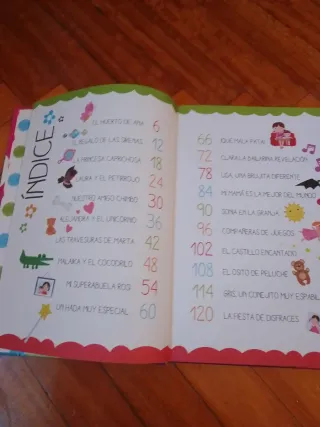 ÍNDICE
EL HUERTO DE ANA 6
EL REGALO DE LAS SIRENAS 12
LA PRINCESA CAPRICHOSA 18
LAURA Y EL PETIRROJO 24
NUESTRO AMIGO CHINO 30
ALEJANDRA Y EL UNICORNIO 36
LAS TRAVESURAS DE MARTA 42
Y EL COCODRILO 48
MI SUPERABUELA ROSI 54
UN HADA MUY ESPECIAL 60
66 ¡QUÉ MALA PATA!
72 CLARA LA BAILARINA REVELACIÓN
78 LISA, UNA BRUJITA DIFERENTE
84 MI MAMÁ ES LA MEJOR DEL MUNDO
90 SONIA EN LA GRANJA
96 COMPAÑERAS DE JUEGOS
102 EL CASTILLO ENCANTADO
108 EL OSITO DE PELUCHE
114 GRIS, UN CONEJITO MUY ESPABIL
120 LA FIESTA DE DISFRACES